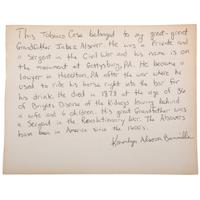 This Tobacco Case belonged to my great-great
Grandfather Jabez Alsover. He was a Private and
a Sergent in the Civil War and his name is on
the monument at Gettysburg, PA. He became a
lawyer in Hazelton, PA after the war where he
used to ride his horse right into the bar for
his drink. He died in 1878 at the age of 36
of Brights Disease of the Kidneys leaving behind
a wife and 6 children. His great Grandfather was
a Sergent in the Revolutionary War. The Alsovers
have been in America since the 1600s.
Alsover